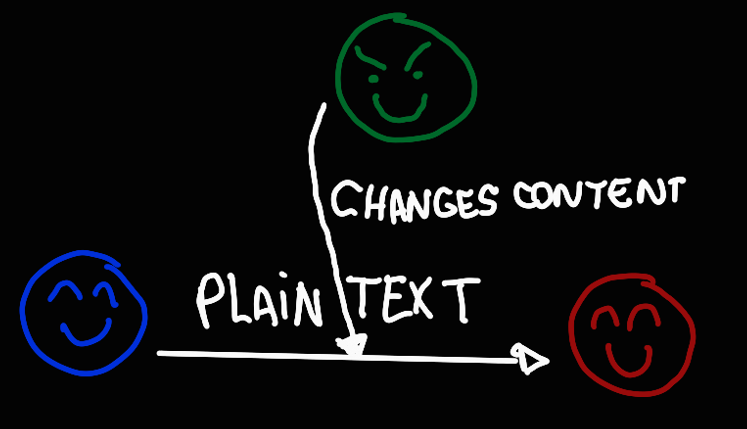 CHANGES CONTENT
PLAiN TEXT